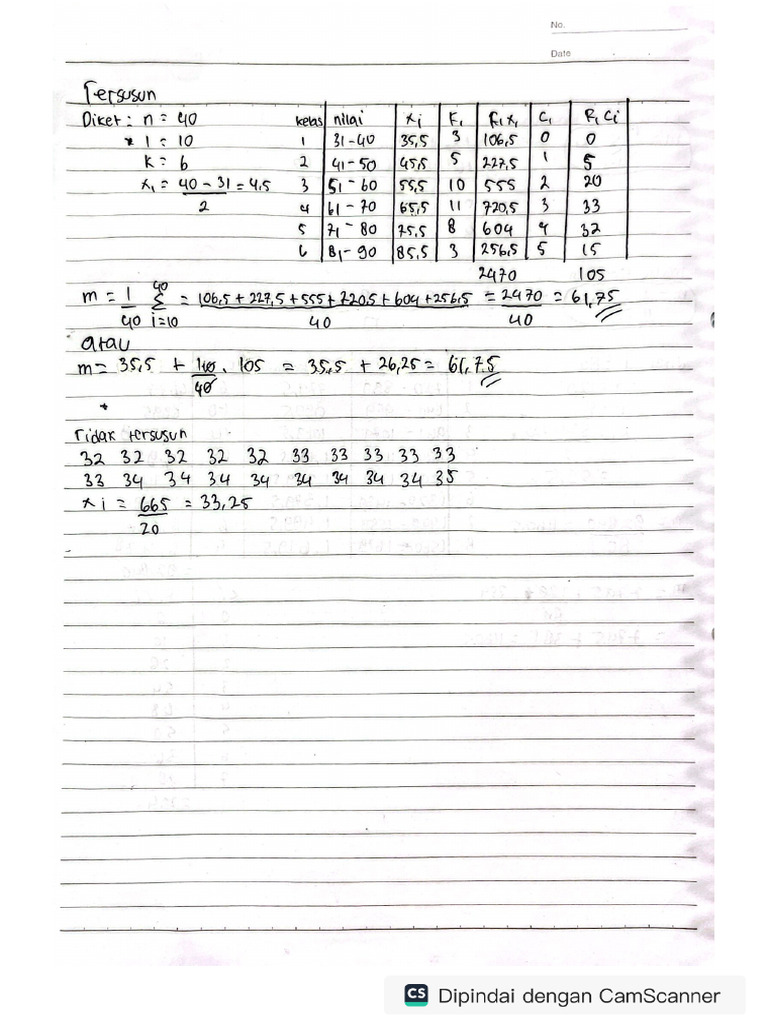 No.
Date
Tersusun
Diket : n = 40
* I = 10
K = 6
x₁ = 40 - 31 = 4,5
2
kelas nilai xi F₁ F₁x₁ C₁ F₁ Ci
1 31-40 35,5 3 106,5 0 0
2 41-50 45,5 5 227,5 1 5
3 51-60 55,5 10 555 2 20
4 61-70 65,5 11 720,5 3 33
5 71-80 75,5 8 604 4 32
6 81-90 85,5 3 256,5 5 15
2470 105
m = 1 40 Σ i=10 = 106,5 + 227,5 + 555 + 720,5 + 604 + 256,5 = 2470 = 61,75
40 40 40
atau
m = 35,5 + 10 . 105 = 35,5 + 26,25 = 61,75
40
Tidak tersusun
32 32 32 32 32 33 33 33 33 33
33 34 34 34 34 34 34 34 34 35
xi = 665 = 33,25
20
CS Dipindai dengan CamScanner